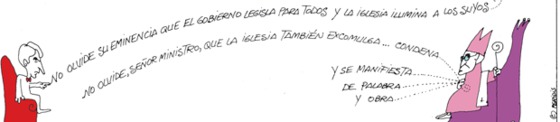 NO OLVIDE SU EMINENCIA QUE EL GOBIERNO LEGISLA PARA TODOS Y LA IGLESIA ILUMINA A LOS SUYOS
NO OLVIDE, SEÑOR MINISTRO, QUE LA IGLESIA TAMBIÉN EXCOMULGA... CONDENA
Y SE MANIFIESTA
DE PALABRA
Y OBRA